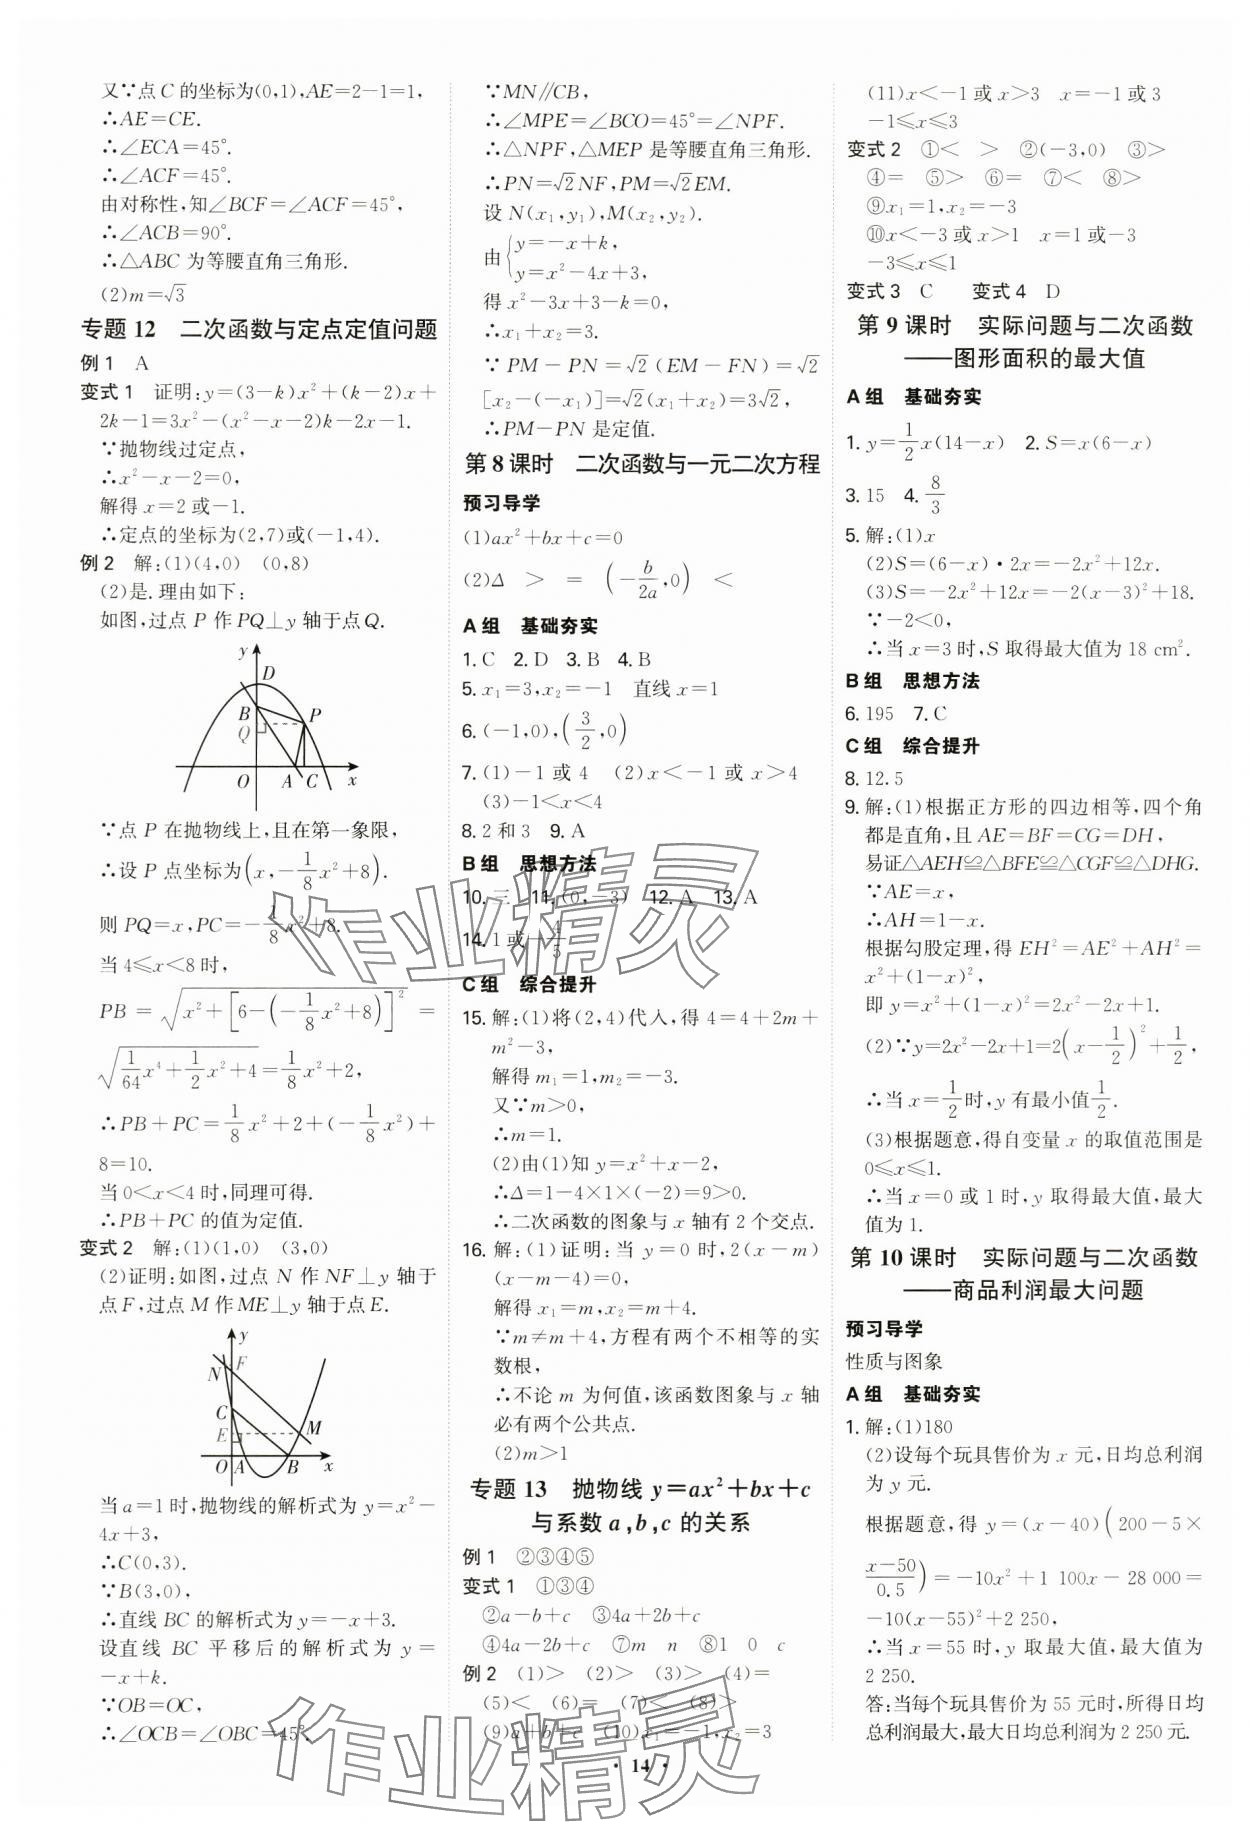 又∵点C的坐标为(0,1),AE=2-1=1,
∴AE=CE.
∴∠ECA=45°.
∴∠ACF=45°.
由对称性,知∠BCF=∠ACF=45°,
∴∠ACB=90°.
∴△ABC为等腰直角三角形.
(2)m=√3
专题12 二次函数与定点定值问题
例1 A
变式1 证明:y=(3-k)x²+(k-2)x+
2k-1=3x²-(x²-x-2)k-2x-1.
∵抛物线过定点,
∴x²-x-2=0,
解得x=2或-1.
∴定点的坐标为(2,7)或(-1,4).
例2 解:(1)(4,0) (0,8)
(2)是.理由如下:
如图,过点P作PQ⊥y轴于点Q.
y
D
B
P
Q
O A C x
∵点P在抛物线上,且在第一象限,
∴设P点坐标为(x,-1/8x²+8).
则PQ=x,PC=-1/8x²+8.
当4≤x<8时,
PB=√(x²+[6-(-1/8x²+8)]²)=
√(1/64x⁴+1/2x²+4)=1/8x²+2,
∴PB+PC=1/8x²+2+(-1/8x²)+
8=10.
当0<x<4时,同理可得.
∴PB+PC的值为定值.
变式2 解:(1)(1,0) (3,0)
(2)证明:如图,过点N作NF⊥y轴于
点F,过点M作ME⊥y轴于点E.
y
N F
C
E M
O A B x
当a=1时,抛物线的解析式为y=x²-
4x+3,
∴C(0,3).
∵B(3,0),
∴直线BC的解析式为y=-x+3.
设直线BC平移后的解析式为y=
-x+k.
∵OB=OC,
∴∠OCB=∠OBC=45°.
∵MN∥CB,
∴∠MPE=∠BCO=45°=∠NPF.
∴△NPF,△MEP是等腰直角三角形.
∴PN=√2NF,PM=√2EM.
设N(x₁,y₁),M(x₂,y₂).
由{y=-x+k,
y=x²-4x+3,
得x²-3x+3-k=0,
∴x₁+x₂=3.
∵PM-PN=√2(EM-FN)=√2
[x₂-(-x₁)]=√2(x₁+x₂)=3√2,
∴PM-PN是定值.
第8课时 二次函数与一元二次方程
预习导学
(1)ax²+bx+c=0
(2)Δ > = (-b/2a,0) <
A组 基础夯实
1.C 2.D 3.B 4.B
5.x₁=3,x₂=-1 直线x=1
6.(-1,0),(3/2,0)
7.(1)-1或4 (2)x<-1或x>4
(3)-1<x<4
8.2和3 9.A
B组 思想方法
10.三 11.(0,-3) 12.A 13.A
14.1或-4/5
C组 综合提升
15.解:(1)将(2,4)代入,得4=4+2m+
m²-3,
解得m₁=1,m₂=-3.
又∵m>0,
∴m=1.
(2)由(1)知y=x²+x-2,
∴Δ=1-4×1×(-2)=9>0.
∴二次函数的图象与x轴有2个交点.
16.解:(1)证明:当y=0时,2(x-m)
(x-m-4)=0,
解得x₁=m,x₂=m+4.
∵m≠m+4,方程有两个不相等的实
数根,
∴不论m为何值,该函数图象与x轴
必有两个公共点.
(2)m>1
专题13 抛物线y=ax²+bx+c
与系数a,b,c的关系
例1 ②③④⑤
变式1 ①③④
②a-b+c ③4a+2b+c
④4a-2b+c ⑦m n ⑧1 0 c
例2 (1)> (2)> (3)> (4)=
(5)< (6)= (7)< (8)>
(9)a+b+c (10)x₁=-1,x₂=3
(11)x<-1或x>3 x=-1或3
-1≤x≤3
变式2 ①< > ②(-3,0) ③>
④= ⑤> ⑥= ⑦< ⑧>
⑨x₁=1,x₂=-3
⑩x<-3或x>1 x=1或-3
-3≤x≤1
变式3 C 变式4 D
第9课时 实际问题与二次函数
——图形面积的最大值
A组 基础夯实
1.y=1/2x(14-x) 2.S=x(6-x)
3.15 4.8/3
5.解:(1)x
(2)S=(6-x)·2x=-2x²+12x.
(3)S=-2x²+12x=-2(x-3)²+18.
∵-2<0,
∴当x=3时,S取得最大值为18 cm².
B组 思想方法
6.195 7.C
C组 综合提升
8.12.5
9.解:(1)根据正方形的四边相等,四个角
都是直角,且AE=BF=CG=DH,
易证△AEH≌△BFE≌△CGF≌△DHG.
∵AE=x,
∴AH=1-x.
根据勾股定理,得EH²=AE²+AH²=
x²+(1-x)²,
即y=x²+(1-x)²=2x²-2x+1.
(2)∵y=2x²-2x+1=2(x-1/2)²+1/2,
∴当x=1/2时,y有最小值1/2.
(3)根据题意,得自变量x的取值范围是
0≤x≤1.
∴当x=0或1时,y取得最大值,最大
值为1.
第10课时 实际问题与二次函数
——商品利润最大问题
预习导学
性质与图象
A组 基础夯实
1.解:(1)180
(2)设每个玩具售价为x元,日均总利润
为y元.
根据题意,得y=(x-40)(200-5×
(x-50)/0.5)=-10x²+1 100x-28 000=
-10(x-55)²+2 250,
∴当x=55时,y取最大值,最大值为
2 250.
答:当每个玩具售价为55元时,所得日均
总利润最大,最大日均总利润为2 250元.
作业精灵
作业精灵
·14·